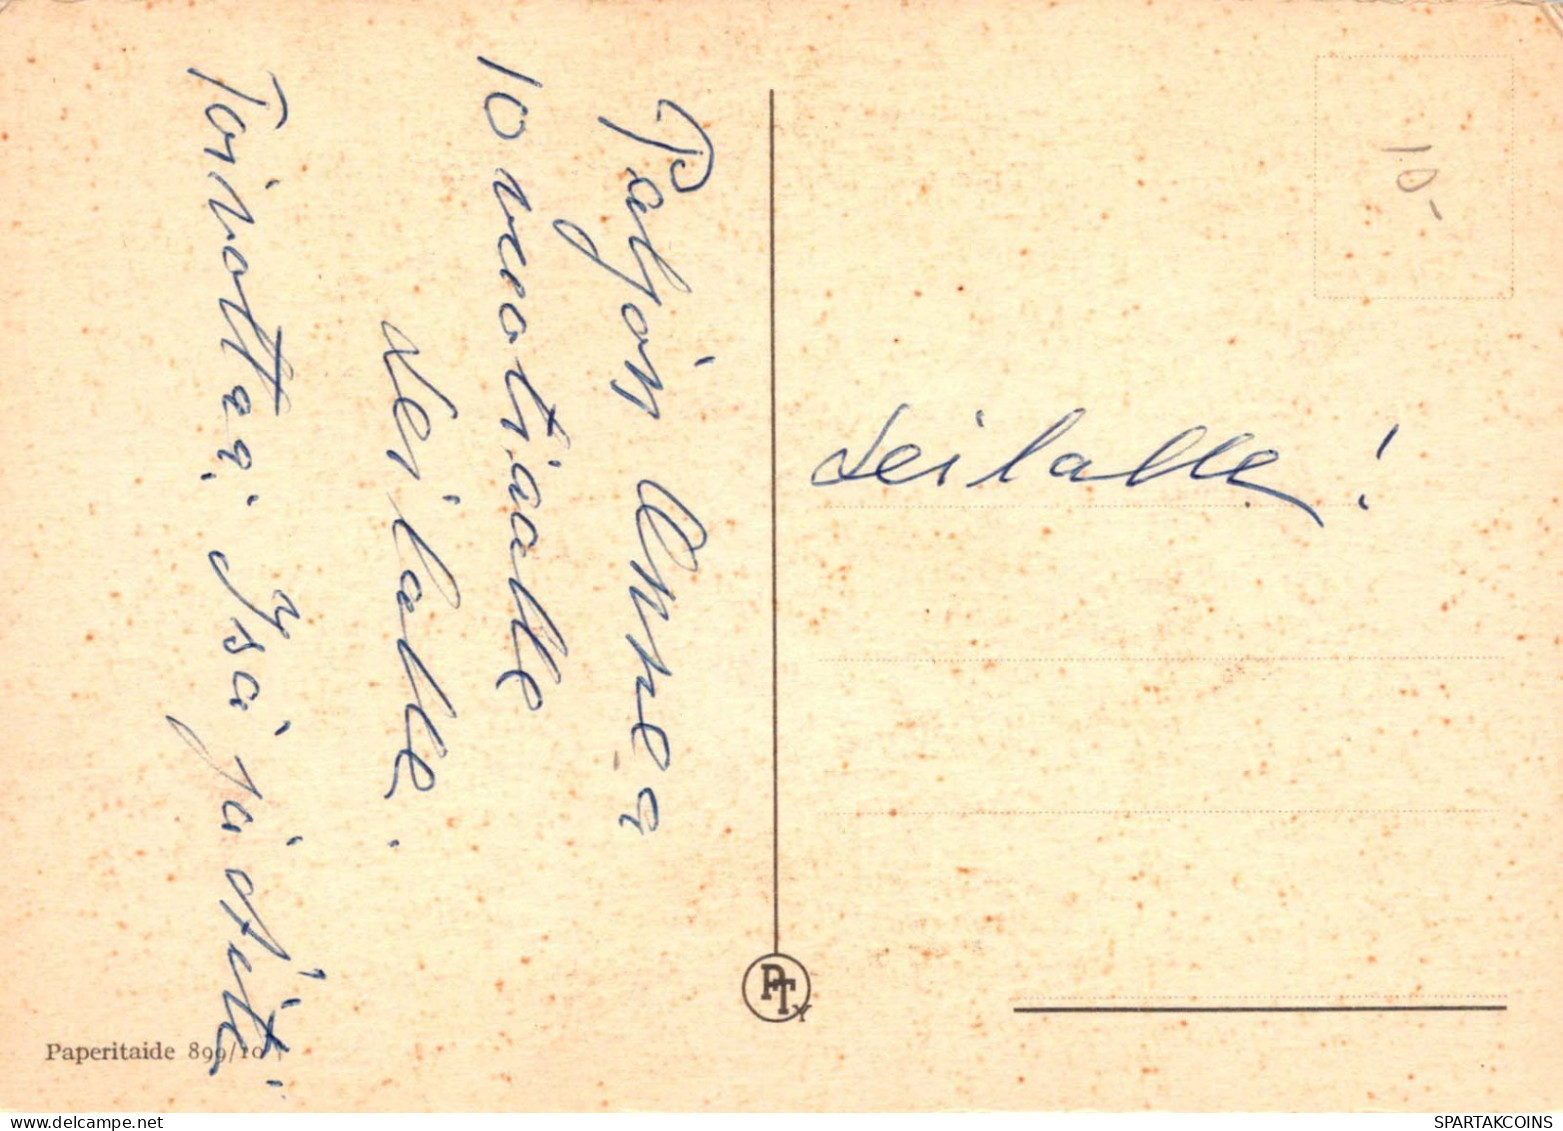 Paljon Onnea
10 vuotiaalle
Leilalle.
Toivottaa; Isä ja Äiti.
Leilalle!
10-
PTY
Paperitaide 899/10
delcampe.net
SPARTAKCOINS